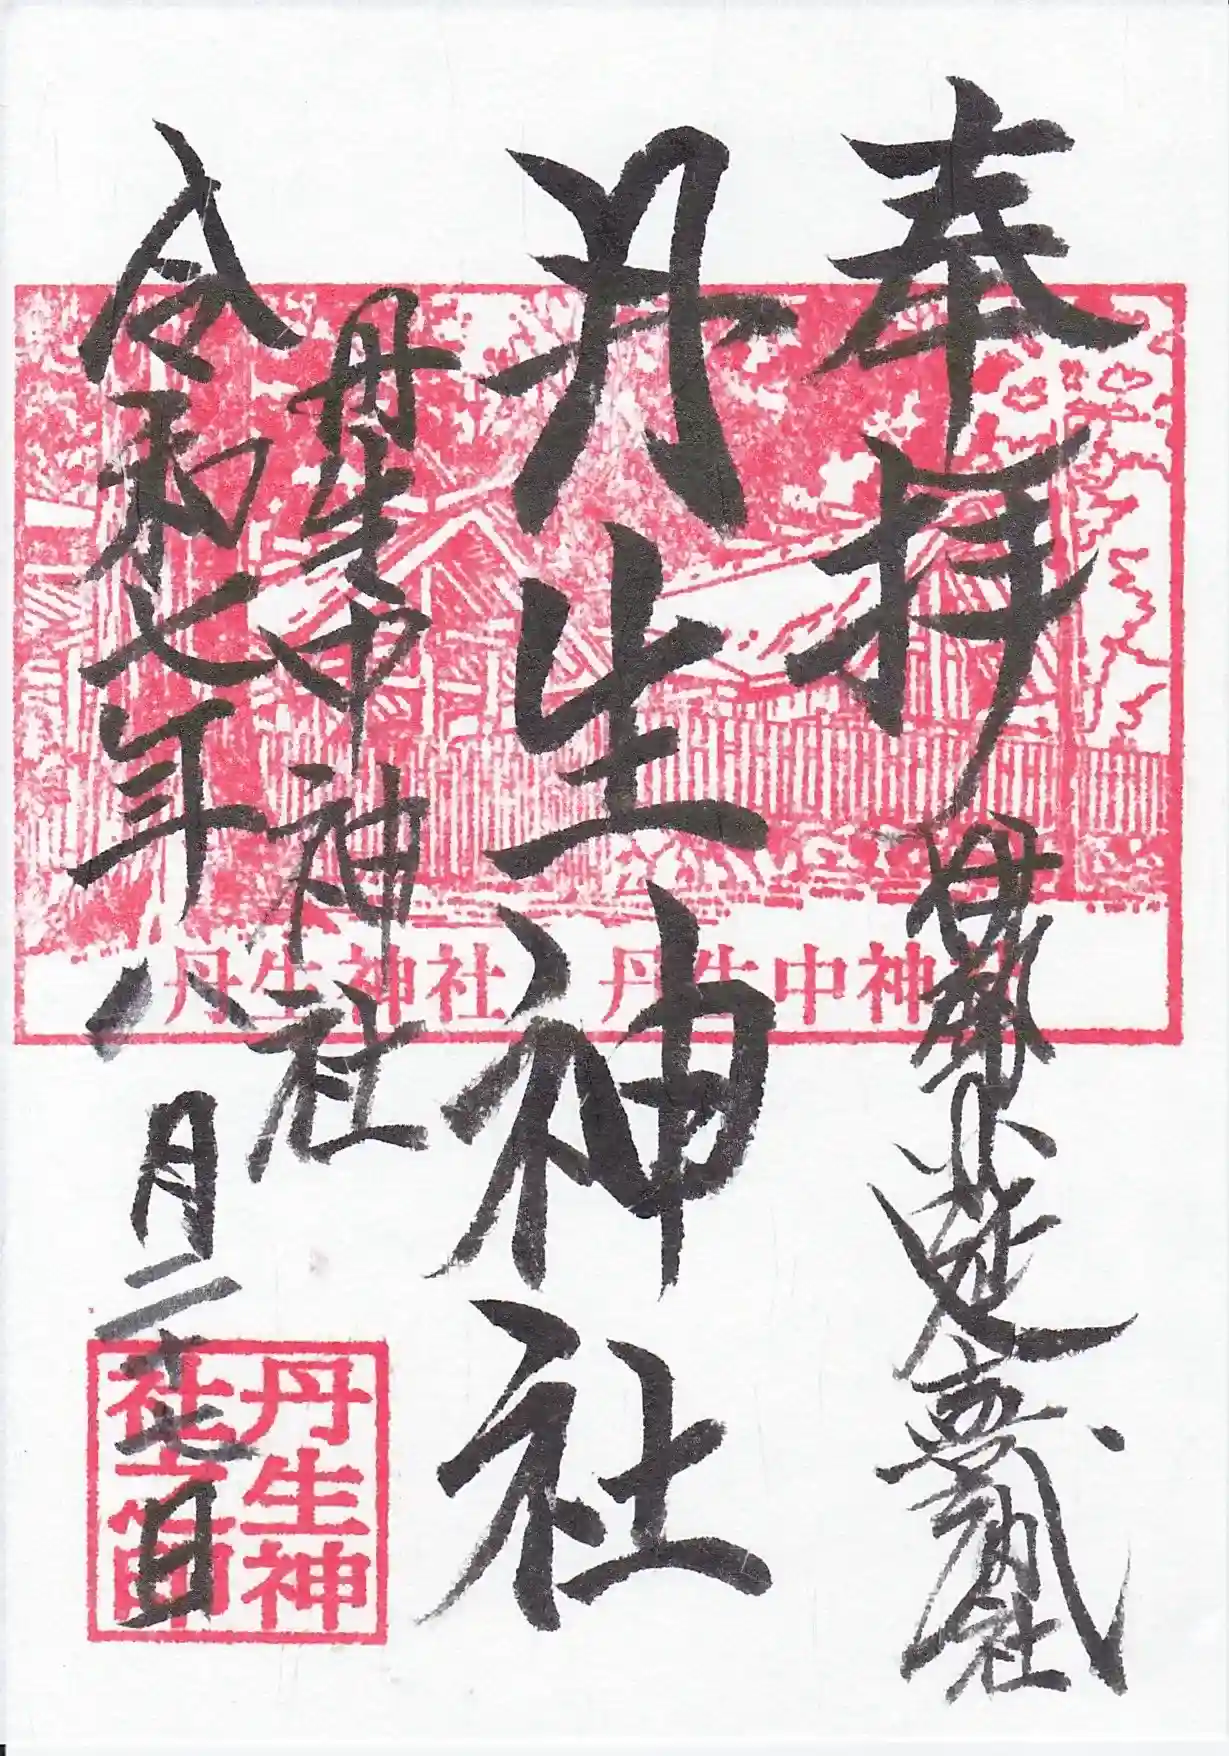 奉拝
伊勢國延喜式内社
丹生神社
丹生中神社
令和七年八月二十七日
丹生神社 丹生中神社
丹生神
社之印